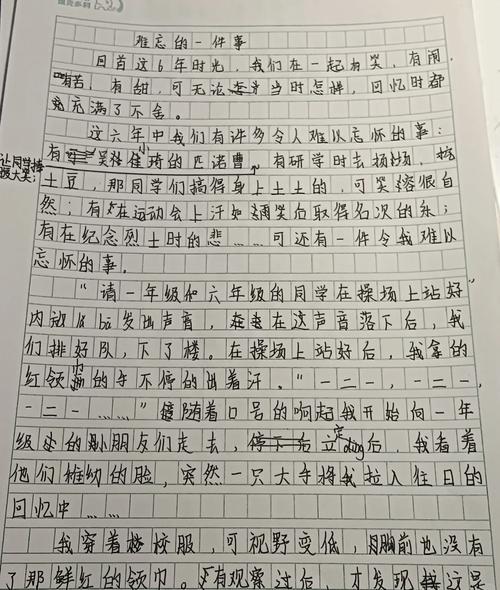 难忘的一件事
回首这6年时光，我们在一起有笑，有闹，
有苦，有甜，可无论当时怎样，回忆时都
充满了不舍。
这六年中我们有许多令人难以忘怀的事：
有小琦的匹诺曹，有研学时去扬场，挖
让同学捧腹大笑；
土豆，那同学们搞得身上土土的，可笑容很自
然；有在运动会上汗如雨后取得名次的乐；
有在纪念烈士时的悲……可还有一件令我难以
忘怀的事。
“请一年级和六年级的同学在操场上站好”
发出声音，在这声音落下后，我
们排好队，下了楼。在操场上站好后，我拿的
红领巾的手不停的出着汗。“一二一，一二一，
一二一……”随着口号的响起我开始向一年
级处的小朋友们走去，立定ding后，我看着
他们稚幼的脸，突然一只大手将我拉入往日的
回忆中……
我穿着校服，可视野变低，胸前也没有
了那鲜红的领巾。有观察过后，才发现这是